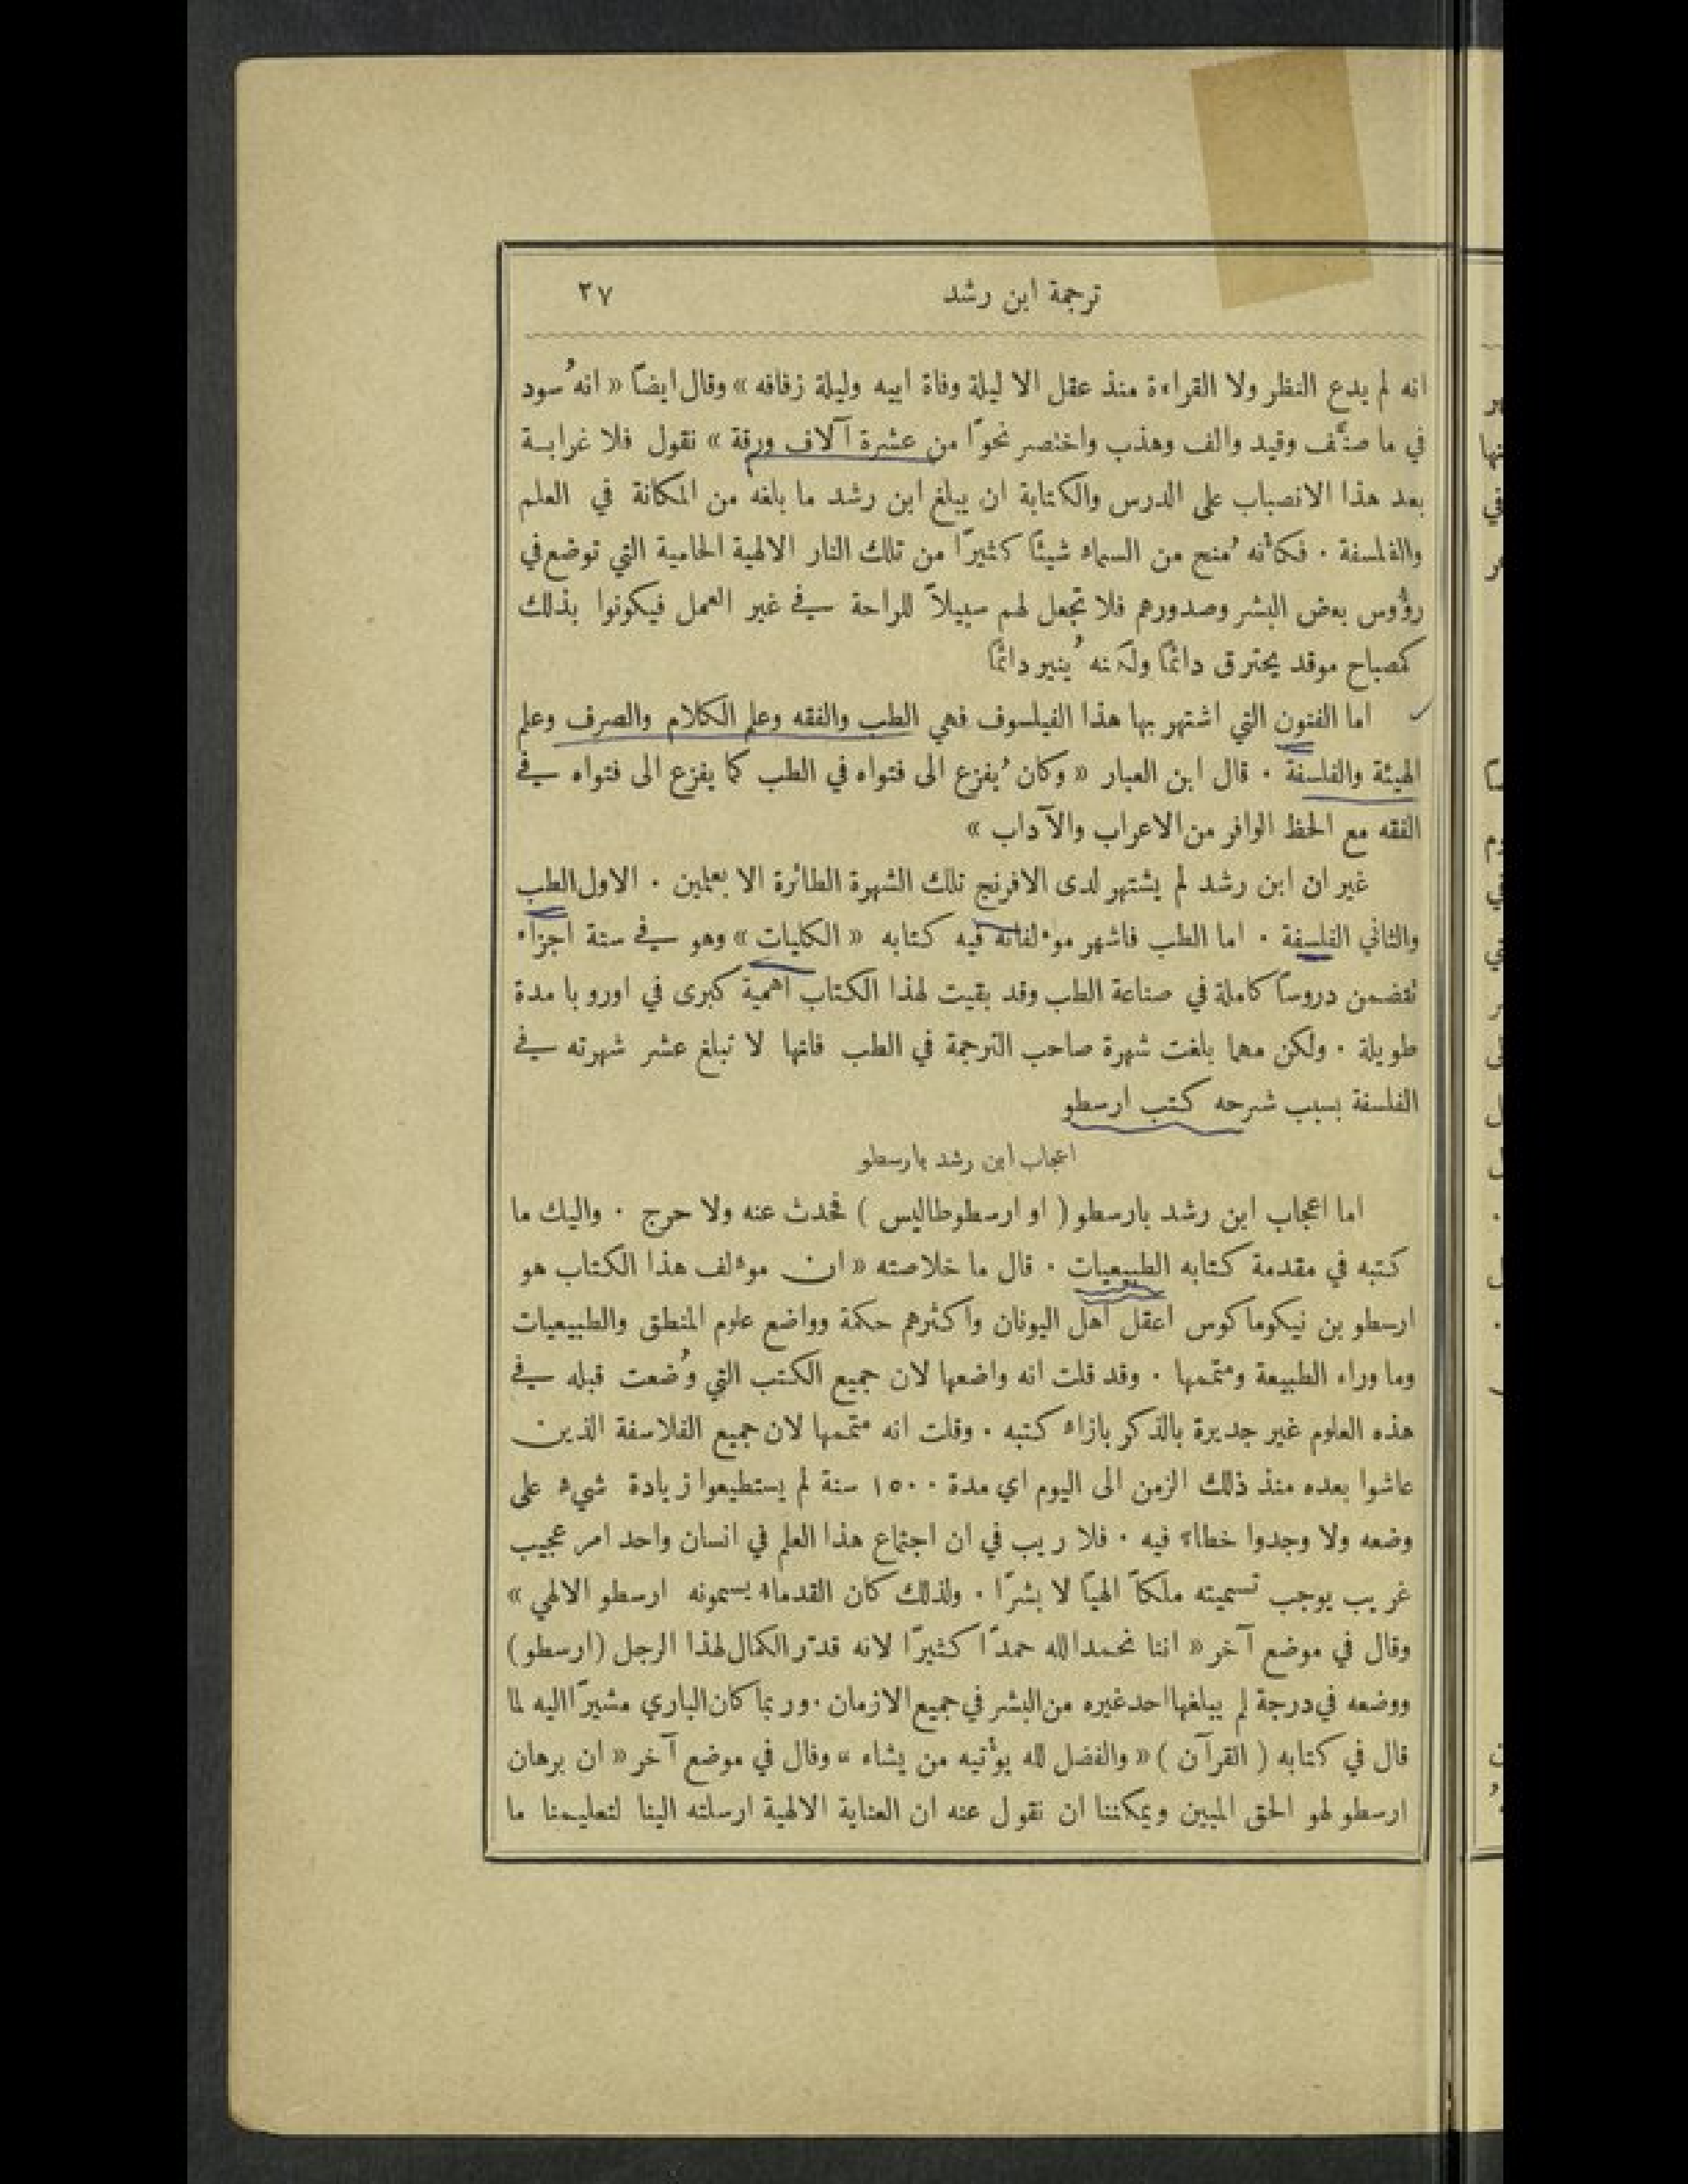 ترجمة ابن رشد
٢٧
انه لم يدع النظر ولا القراءة منذ عقل الا ليلة وفاة ابيه وليلة زفافه » وقال ايضاً « انهُ سود
في ما صنَّف وقيد والف وهذب واختصر نحوًا من عشرة آلاف ورقة » نقول فلا غرابة
بعد هذا الانصباب على الدرس والكتابة ان يبلغ ابن رشد ما بلغه من المكانة في العلم
والفلسفة . فكأنه مُنح من السماء شيئًا كثيرًا من تلك النار الالهية الحامية التي توضع في
رؤُوس بعض البشر وصدورهم فلا تجعل لهم سبيلاً للراحة في غير العمل فيكونوا بذلك
كمصباح موقد يحترق دائمًا ولكنه يُنير دائمًا
اما الفنون التي اشتهر بها هذا الفيلسوف فهي الطب والفقه وعلم الكلام والصرف وعلم
الهيئة والفلسفة . قال ابن العبار « وكان يُفزع الى فتواه في الطب كما يفزع الى فتواه في
الفقه مع الحظ الوافر من الاعراب والآداب »
غير ان ابن رشد لم يشتهر لدى الافرنج تلك الشهرة الطائرة الا بعلمين . الاول الطب
والثاني الفلسفة . اما الطب فاشهر موءلفاته فيه كتابه « الكليات » وهو في ستة اجزاء
تتضمن دروساً كاملة في صناعة الطب وقد بقيت لهذا الكتاب اهمية كبرى في اوروبا مدة
طويلة . ولكن مهما بلغت شهرة صاحب الترجمة في الطب فانها لا تبلغ عشر شهرته في
الفلسفة بسبب شرحه كتب ارسطو
اعجاب ابن رشد بارسطو
اما اعجاب ابن رشد بارسطو ( او ارسطوطاليس ) فحدث عنه ولا حرج . واليك ما
كتبه في مقدمة كتابه الطبيعيات . قال ما خلاصته « ان موءلف هذا الكتاب هو
ارسطو بن نيكوماكوس اعقل اهل اليونان واكثرهم حكمة وواضع علوم المنطق والطبيعيات
وما وراء الطبيعة ومتممها . وقد قلت انه واضعها لان جميع الكتب التي وُضعت قبله في
هذه العلوم غير جديرة بالذكر بازاء كتبه . وقلت انه متممها لان جميع الفلاسفة الذين
عاشوا بعده منذ ذلك الزمن الى اليوم اي مدة ١٥٠٠ سنة لم يستطيعوا زيادة شيء على
وضعه ولا وجدوا خطاءً فيه . فلا ريب في ان اجتماع هذا العلم في انسان واحد امر عجيب
غريب يوجب تسميته ملكاً الهيًا لا بشرًا . ولذلك كان القدماء يسمونه ارسطو الالهي »
وقال في موضع آخر « اننا نحمد الله حمدًا كثيرًا لانه قدَّر الكمال لهذا الرجل (ارسطو)
ووضعه في درجة لم يبلغها احد غيره من البشر في جميع الازمان . وربما كان الباري مشيرًا اليه لما
قال في كتابه ( القرآن ) « والفضل لله يوْتيه من يشاء » وقال في موضع آخر « ان برهان
ارسطو لهو الحق المبين ويمكننا ان نقول عنه ان العناية الالهية ارسلته الينا لتعليمنا ما